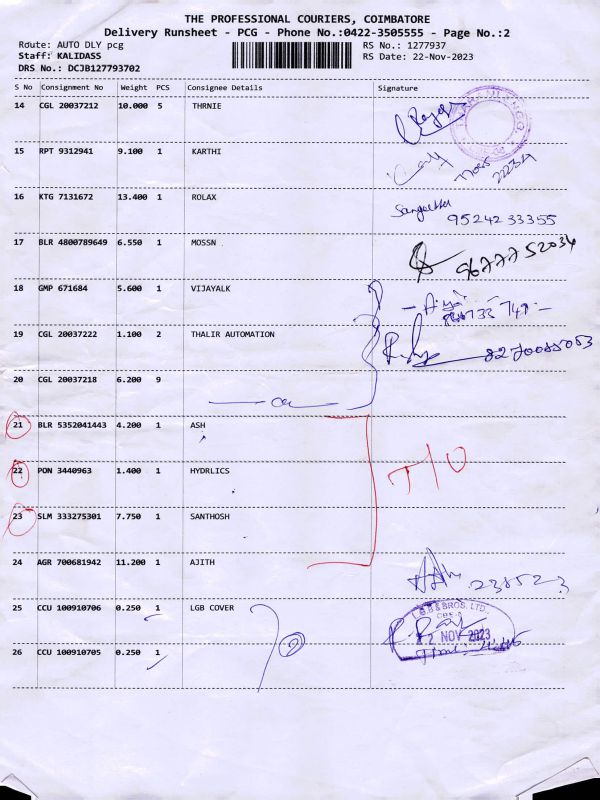 THE PROFESSIONAL COURIERS, COIMBATORE
Delivery Runsheet - PCG - Phone No.:0422-3505555 - Page No.:2
Route: AUTO DLY pcg RS No.: 1277937
Staff: KALIDASS RS Date: 22-Nov-2023
DRS No.: DCJB127793702
S No Consignment No Weight PCS Consignee Details Signature
14 CGL 20037212 10.000 5 THRNIE
15 RPT 9312941 9.100 1 KARTHI
16 KTG 7131672 13.400 1 ROLAX Sangeetha
9524233355
17 BLR 4800789649 6.550 1 MOSSN
9677752034
18 GMP 671684 5.600 1 VIJAYALK
19 CGL 20037222 1.100 2 THALIR AUTOMATION
20 CGL 20037218 6.200 9
21 BLR 5352041443 4.200 1 ASH
22 PON 3440963 1.400 1 HYDRLICS T/O
23 SLM 333275301 7.750 1 SANTHOSH
24 AGR 700681942 11.200 1 AJITH
25 CCU 100910706 0.250 1 LGB COVER
L.G.B & BROS. LTD.
2 NOV 2023
26 CCU 100910705 0.250 1